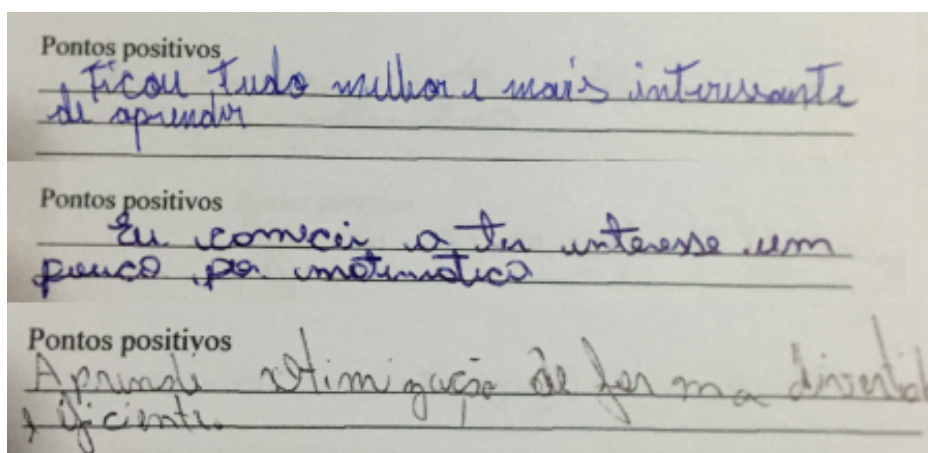 Pontos positivos
Ficou tudo melhor e mais interessante
de aprender
Pontos positivos
Eu comecei a ter interesse um
pouco por matematica
Pontos positivos
Aprendi otimização de forma divertid
e eficiente.